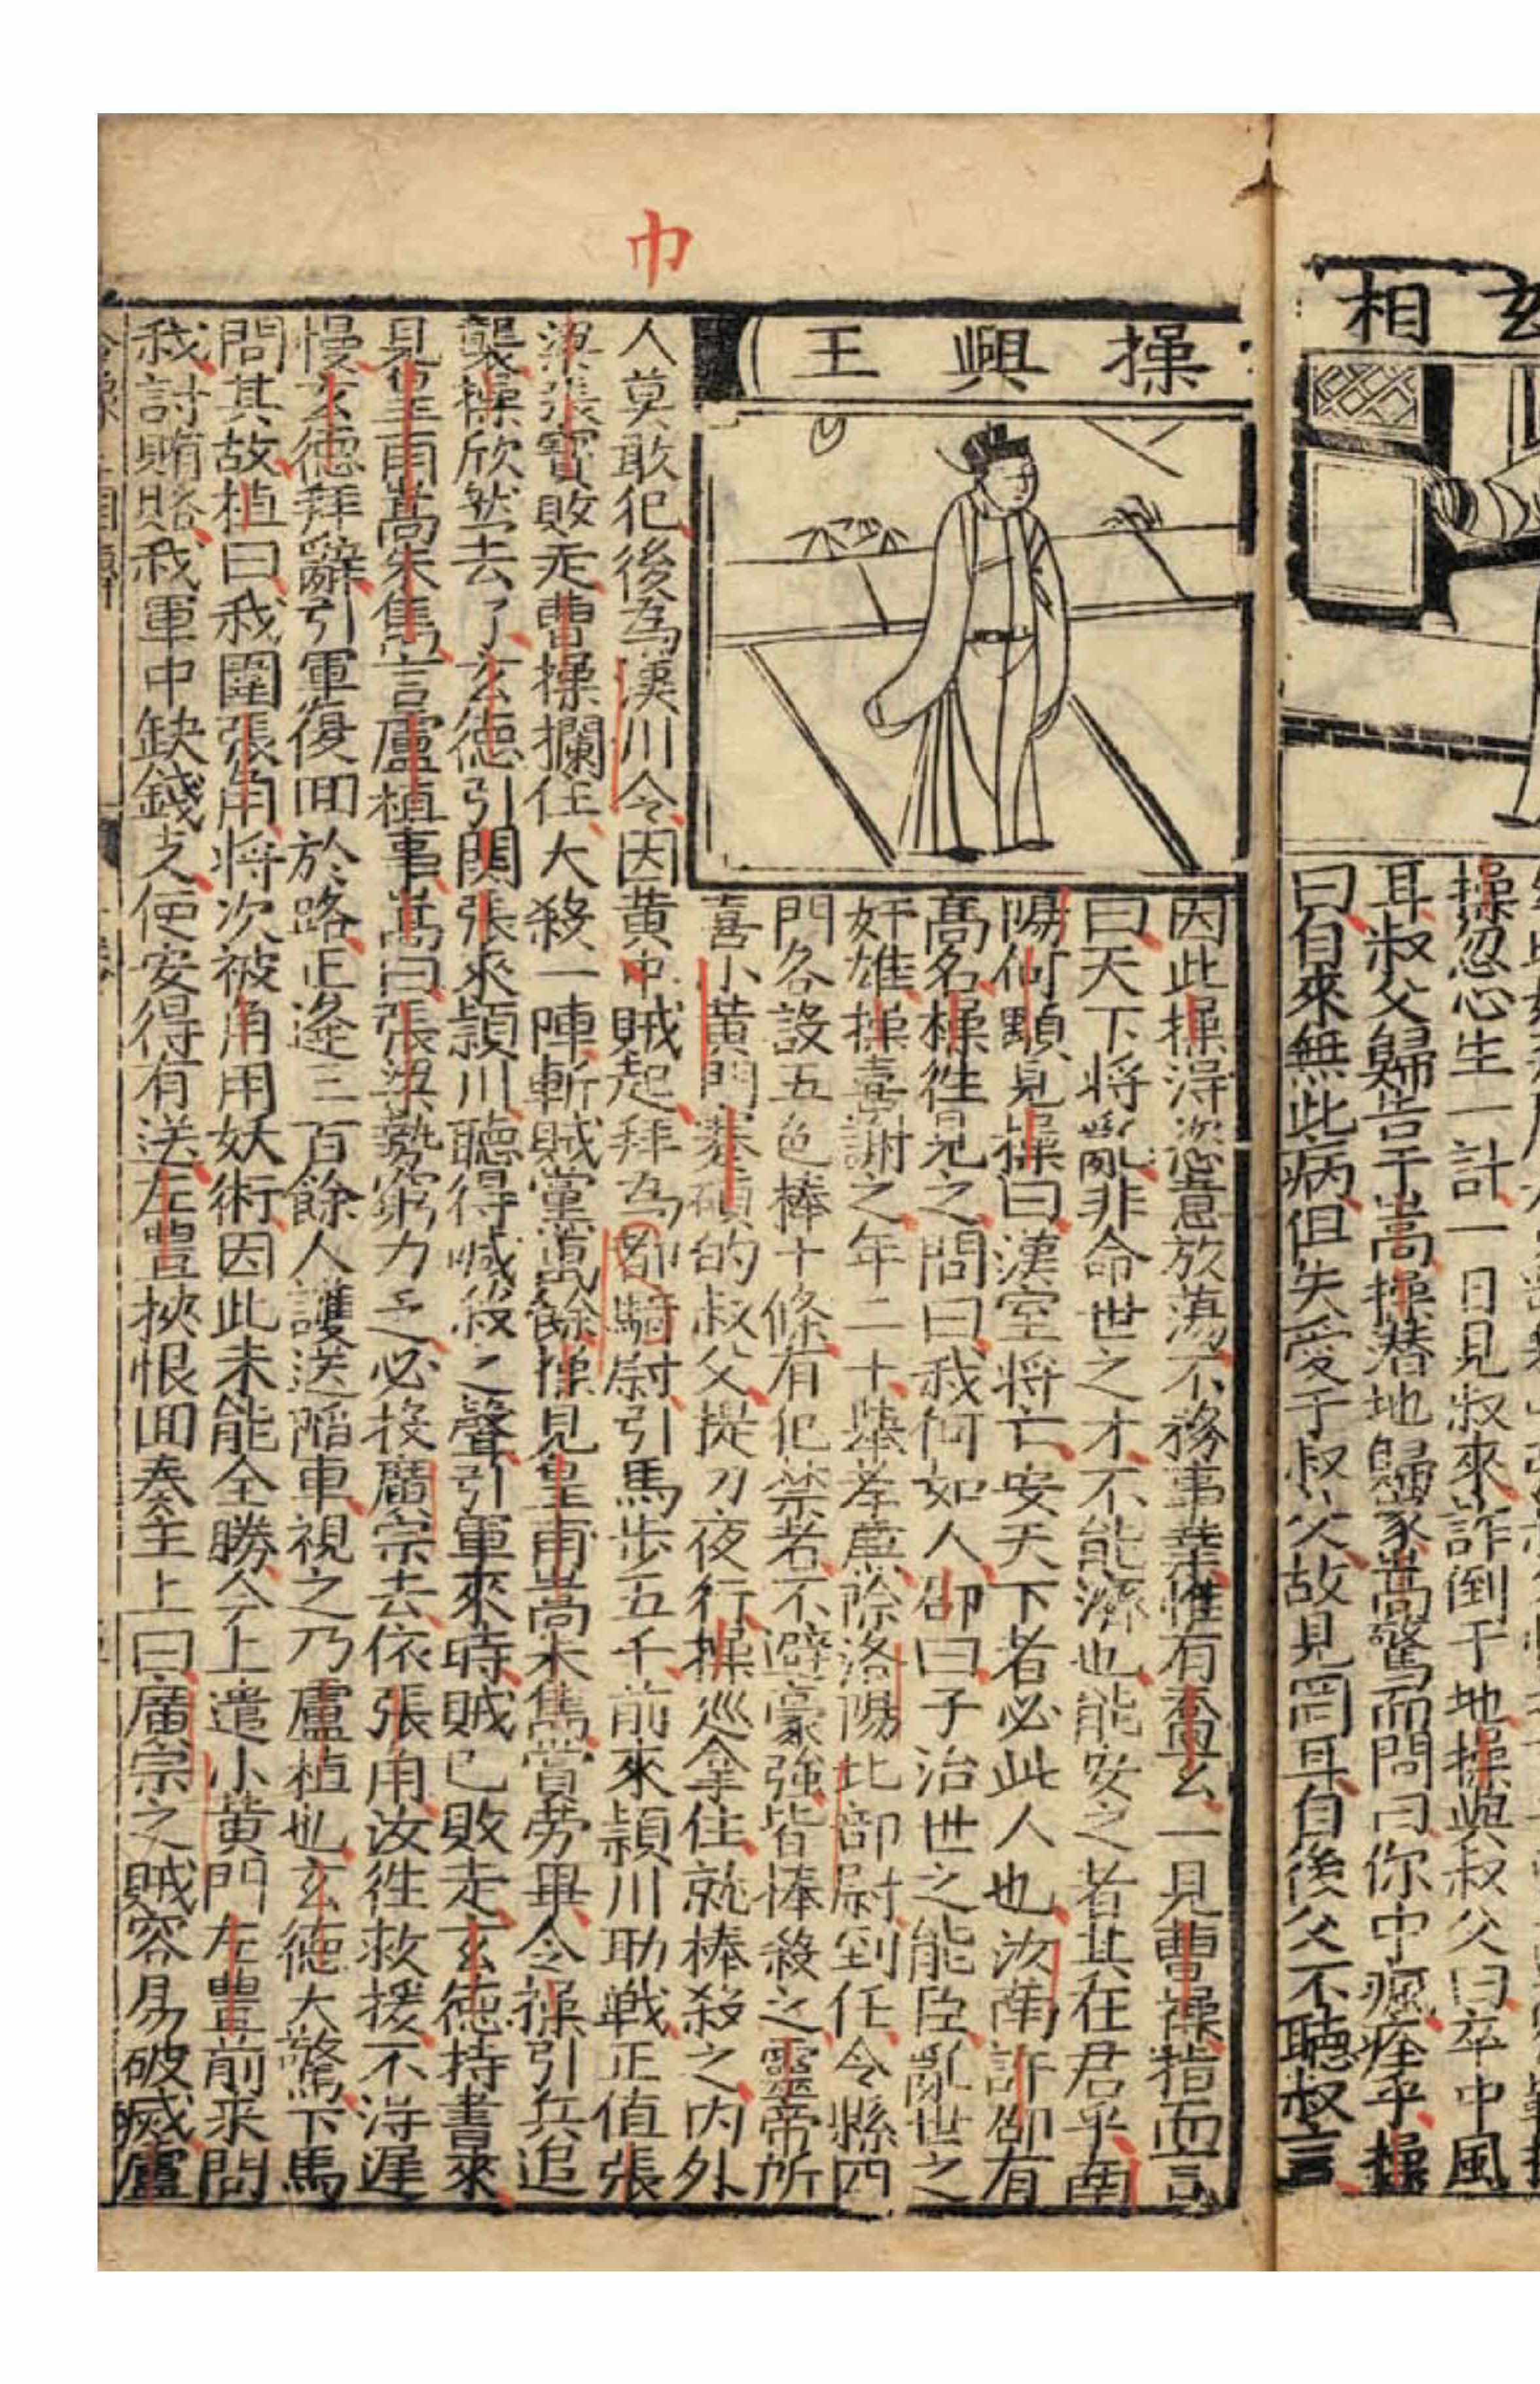 玄相
操忽心生一計一日見叔來詐倒于地操與叔父曰卒中風
耳叔父歸告于嵩操潛地歸家嵩驚而問曰你中瘋痊乎操
曰自來無此病但失愛于叔父故見罔耳自後父不聽叔言
操與王
因此操淂恣意放蕩不務事業惟有喬玄一見曹操指而言
曰天下将亂非命世之才不能濟也能安之者其在君乎南
陽何顒見操曰漢室将亡安天下者必此人也汝南許邵有
髙名操徃見之問曰我何如人邵曰子治世之能臣亂世之
奸雄操喜謝之年二十舉孝廉除洛陽北部尉到任令縣四
門各設五色棒十條有犯禁者不避豪強皆棒殺之靈帝所
喜小黄門蹇碩的叔父提刀夜行操巡拿住就棒殺之内外
人莫敢犯後為漢川令因黄巾賊起拜為都騎尉引馬步五千前來頴川助戰正值張
巾
梁張寳敗走曹操攔住大殺一陣斬賊黨萬餘操見皇甫嵩朱雋賞劳畢令操引兵追
襲操欣然去了玄德引関張來頴川聽得喊殺之聲引軍來時賊已敗走玄德持書來
見皇甫嵩朱雋言盧植事嵩曰張梁勢窮力乏必投廣宗去依張角汝徃救援不淂遲
慢玄德拜辭引軍復囬於路正逄三百餘人護送陷車視之乃盧植也玄德大驚下馬
問其故植曰我圍張角将次被角用妖術因此未能全勝今上遣小黄門左豐前來問
我討賄賂我軍中缺錢支使安得有送左豐挾恨囬奏主上曰廣宗之賊容易破滅盧